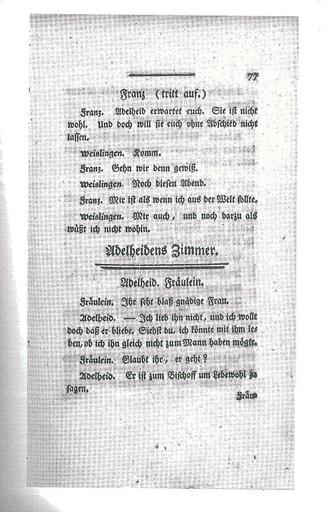 77
Franz (tritt auf.)
Franz. Adelheid erwartet euch. Sie ist nicht
wohl. Und doch will sie euch ohne Abschied nicht
lassen.
Weislingen. Komm.
Franz. Gehn wir denn gewiß.
Weislingen. Noch diesen Abend.
Franz. Mir ist als wenn ich aus der Welt sollte.
Weislingen. Mir auch, und noch darzu als
wüßt ich nicht wohin.
Adelheidens Zimmer.
Adelheid. Fräulein.
Fräulein. Ihr seht blaß gnädige Frau.
Adelheid. — Ich lieb ihn nicht, und ich wollt
doch daß er bliebe. Siehst du, ich könnte mit ihm le=
ben, ob ich ihn gleich nicht zum Mann haben mögte.
Fräulein. Glaubt ihr, er geht?
Adelheid. Er ist zum Bischoff um Lebewohl zu
sagen.
Fräu=